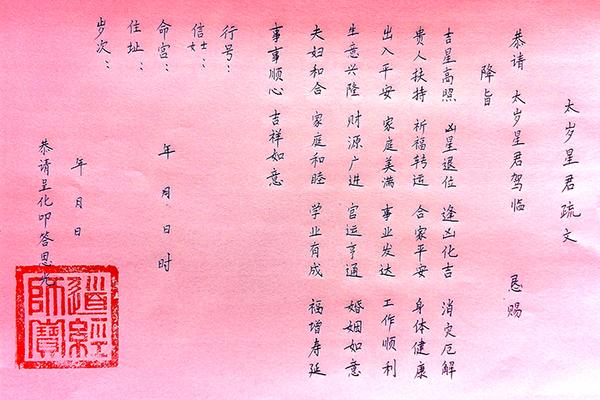 太岁星君疏文
恭请 太岁星君驾临 恳赐
降旨
吉星高照 凶星退位 逢凶化吉 消灾厄解
贵人扶持 祈福转运 合家平安 身体健康
出入平安 家庭美满 事业发达 工作顺利
生意兴隆 财源广进 官运亨通 婚姻如意
夫妇和合 家庭和睦 学业有成 福增寿延
事事顺心 吉祥如意
行号：
信士女：
命宫： 年 月 日 时
住址：
岁次：
年 月 日
恭请呈化叩答恩光
道經師寶